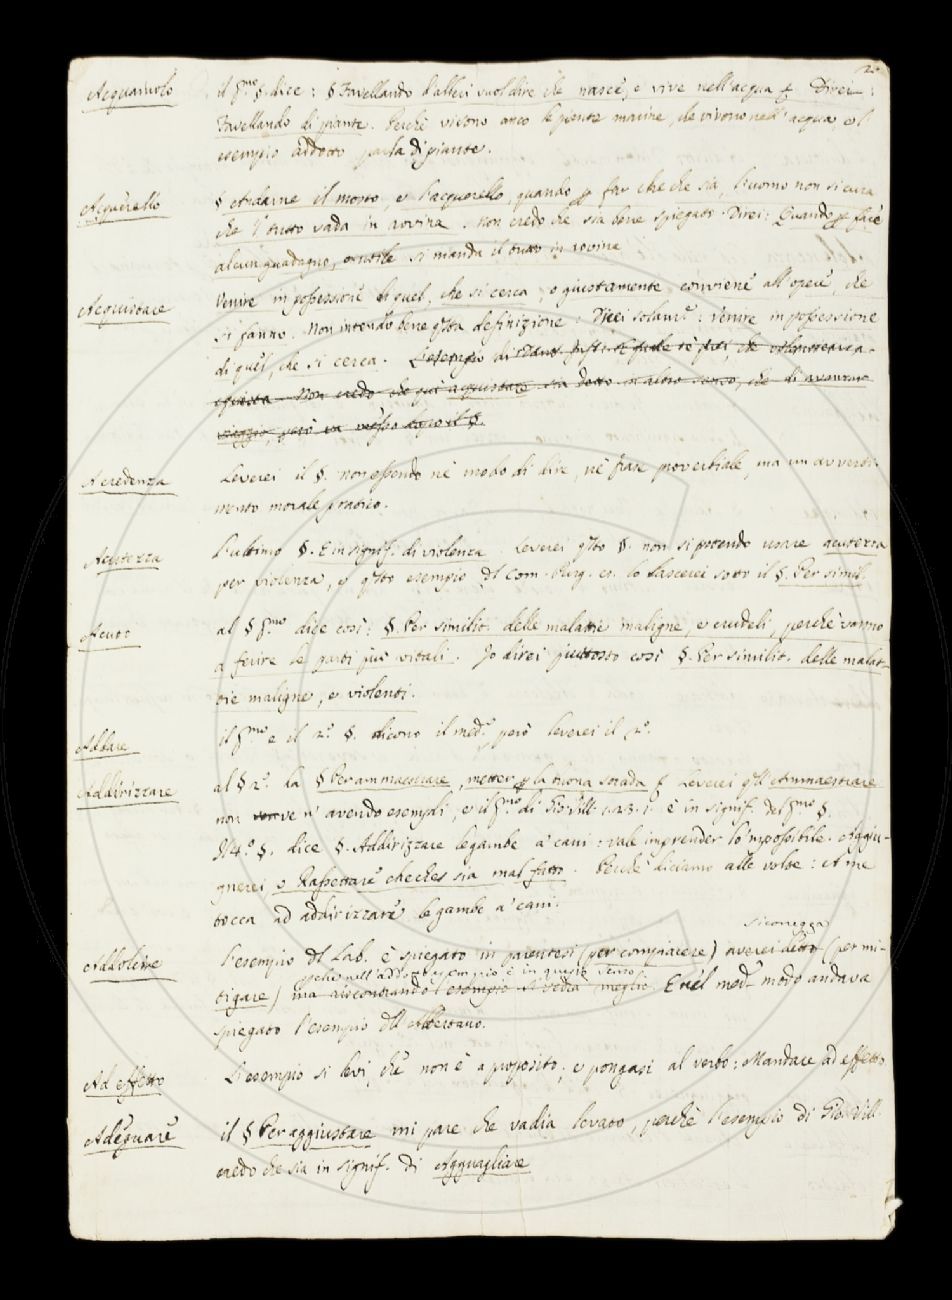 20
Acquaiuolo il p.mo §. dice: § Favellando d'alberi vuol dire che nasce, e vive nell'acqua &. Direi:
Favellando di piante. Perchè vivono anco le piante marine, che vivono nell'acqua, e l'
esempio addotto parla di piante.
Acquerello § Andarne il mosto, e l'acquerello, quando p far che che sia, l'uomo non si cura
che 'l tutto vada in rovina. Non credo che sia bene spiegato. Direi: Quando p fare
alcun guadagno, o utile si manda il tutto in rovina
Acquistare Venire in possessione di quel, che si cerca, e giustamente conviene all'opere, che
si fanno. Non intendo bene q.sta definizione: Direi solam.e: Venire in possessione
di quel, che si cerca. L'esempio di Dant.
Non credo che qui acquistare sia detto in altro senso, che di avanzare
viaggio, però va messo dopo il §.
Acredenza Leverei il §. non essendo nè modo di dire, nè frase proverbiale, ma un avverti-
mento morale pratico.
Acutezza L'ultimo §. E in signif. di violenza. Leverei q.sto §. non si potendo usare acutezza
per violenza, e q.sto esempio del Com. Purg. cr. lo lascerei sotto il §. Per simil.
Acuto al § p.mo dice così: §. Per similit. delle malattie maligne, e crudeli, perchè vanno
a ferire le parti più vitali. Io direi piuttosto così §. Per similit. delle malat-
tie maligne, e violenti.
Addare il p.mo e il 2.o §. dicono il med.o, però leverei il 2.o
Addirizzare al § 2.o la § Per ammaestrare, metter p la buona strada &. Leverei q.ll' Ammaestrare
non ve n'avendo esempi, e il p.mo di Gio: Vill. 1.23.1. è in signif. del p.mo §.
Il 4.o §. dice §. Addirizzare le gambe a' cani: vale imprender l'impossibile. Aggiu-
gnerei, o Rassettare checchessia mal fatto. Perchè diciamo alle volte: A me
tocca ad addirizzare le gambe a' cani.
si corregga
Addolcire L'esempio del Lab. è spiegato in parentesi (per compiacere) averei detto (per mi-
perche nell'addotto esempio è in questo senso
tigare) ma riscontrando l'esempio si vedrà meglio. E nel med.o modo andava
spiegato l'esempio dell'Albertano.
Ad effetto L'esempio si levi, che non è a proposito, e pongasi al verbo: Mandare ad effetto.
Adeguare il § Per aggiustare mi pare che vadia levato, perchè l'esempio di Gio: Vill.
credo che sia in signif. di Agguagliare